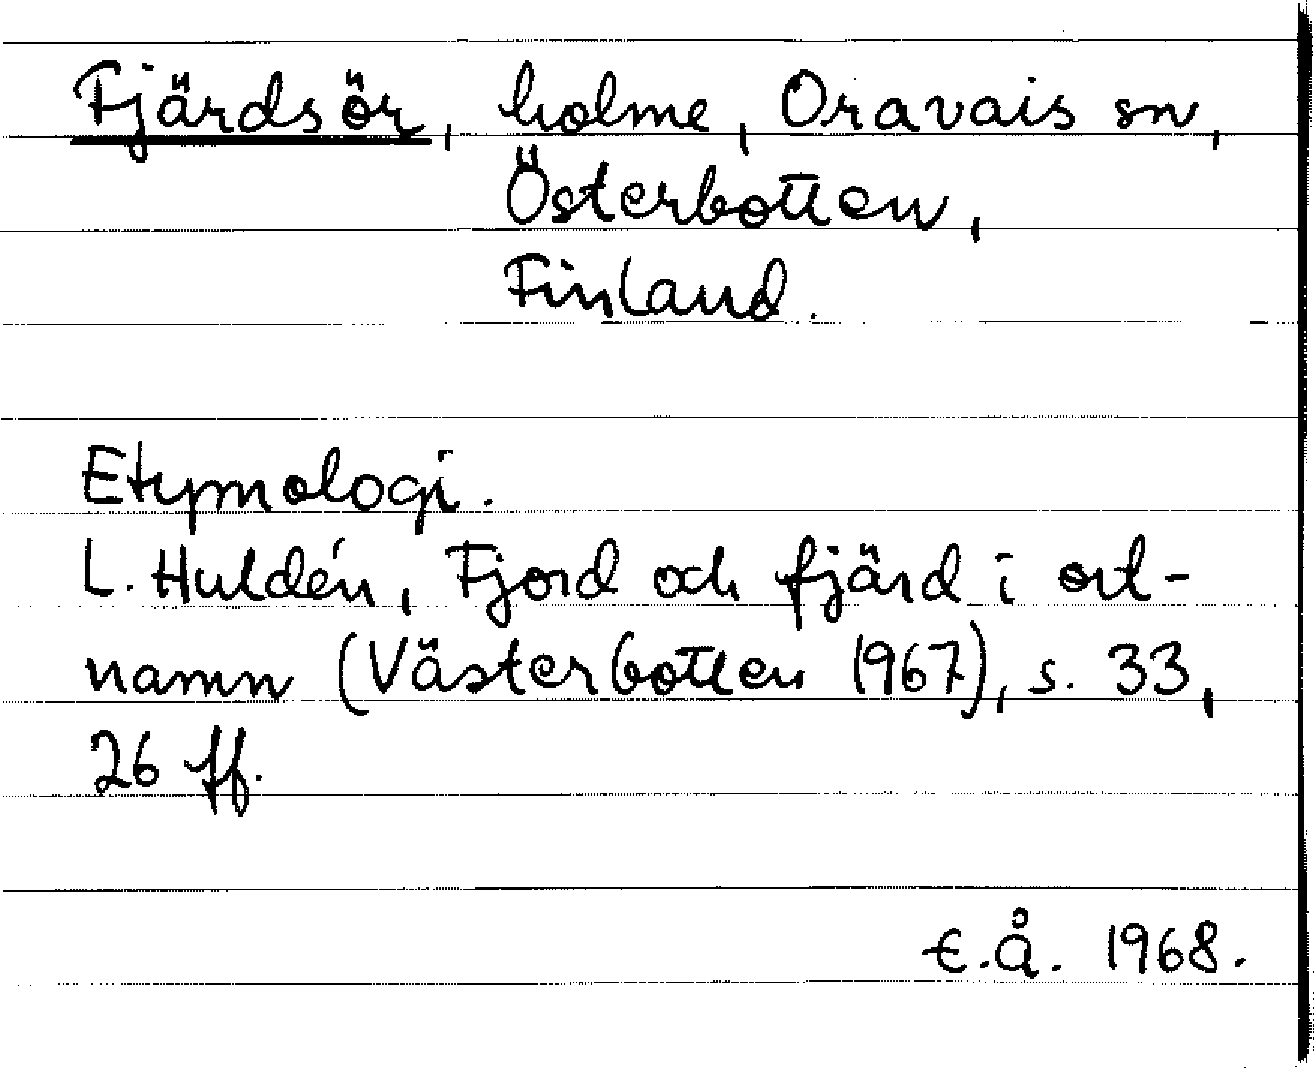 Fjärdsör, holme, Oravais sn,
Österbotten,
Finland.
Etymologi.
L. Huldén, Fjord och fjärd i ort-
namn (Västerbotten 1967), s. 33,
26 ff.
E.Å. 1968.